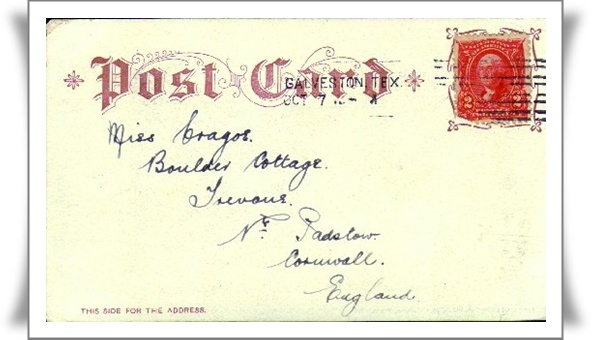 Post Card
GALVESTON, TEX.
OCT 7
2 2
Miss Cragos.
Boulder Cottage.
Trevone.
Nr. Padstow.
Cornwall.
England.
THIS SIDE FOR THE ADDRESS.